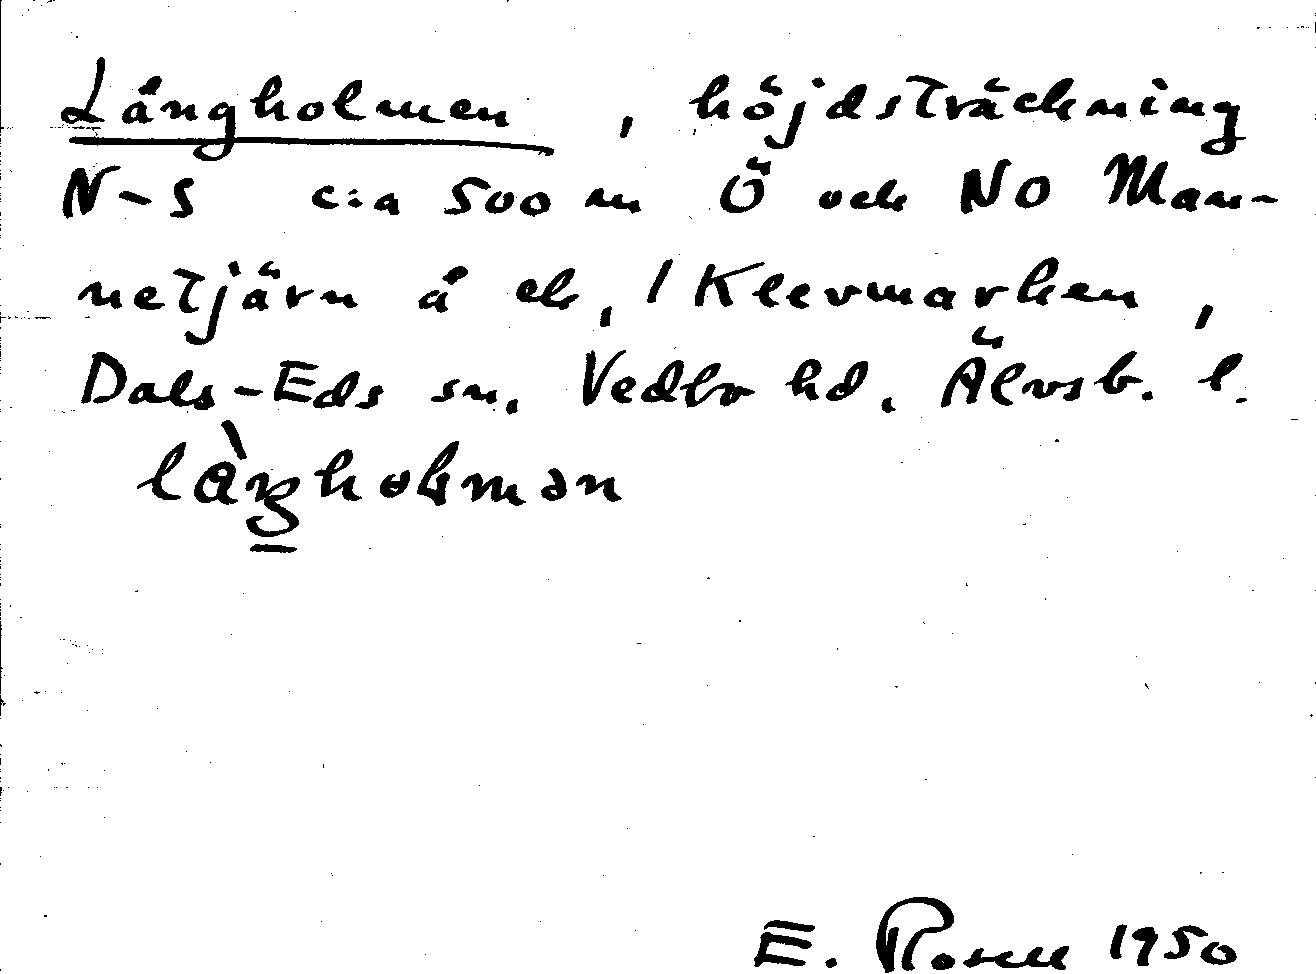 Långholmen, höjdsträckning
N-S c:a 500 m Ö och NO Man-
netjärn å ek, 1 Klevmarken,
Dals-Eds sn. Vedbo hd. Älvsb. l.
E. Rosell 1950